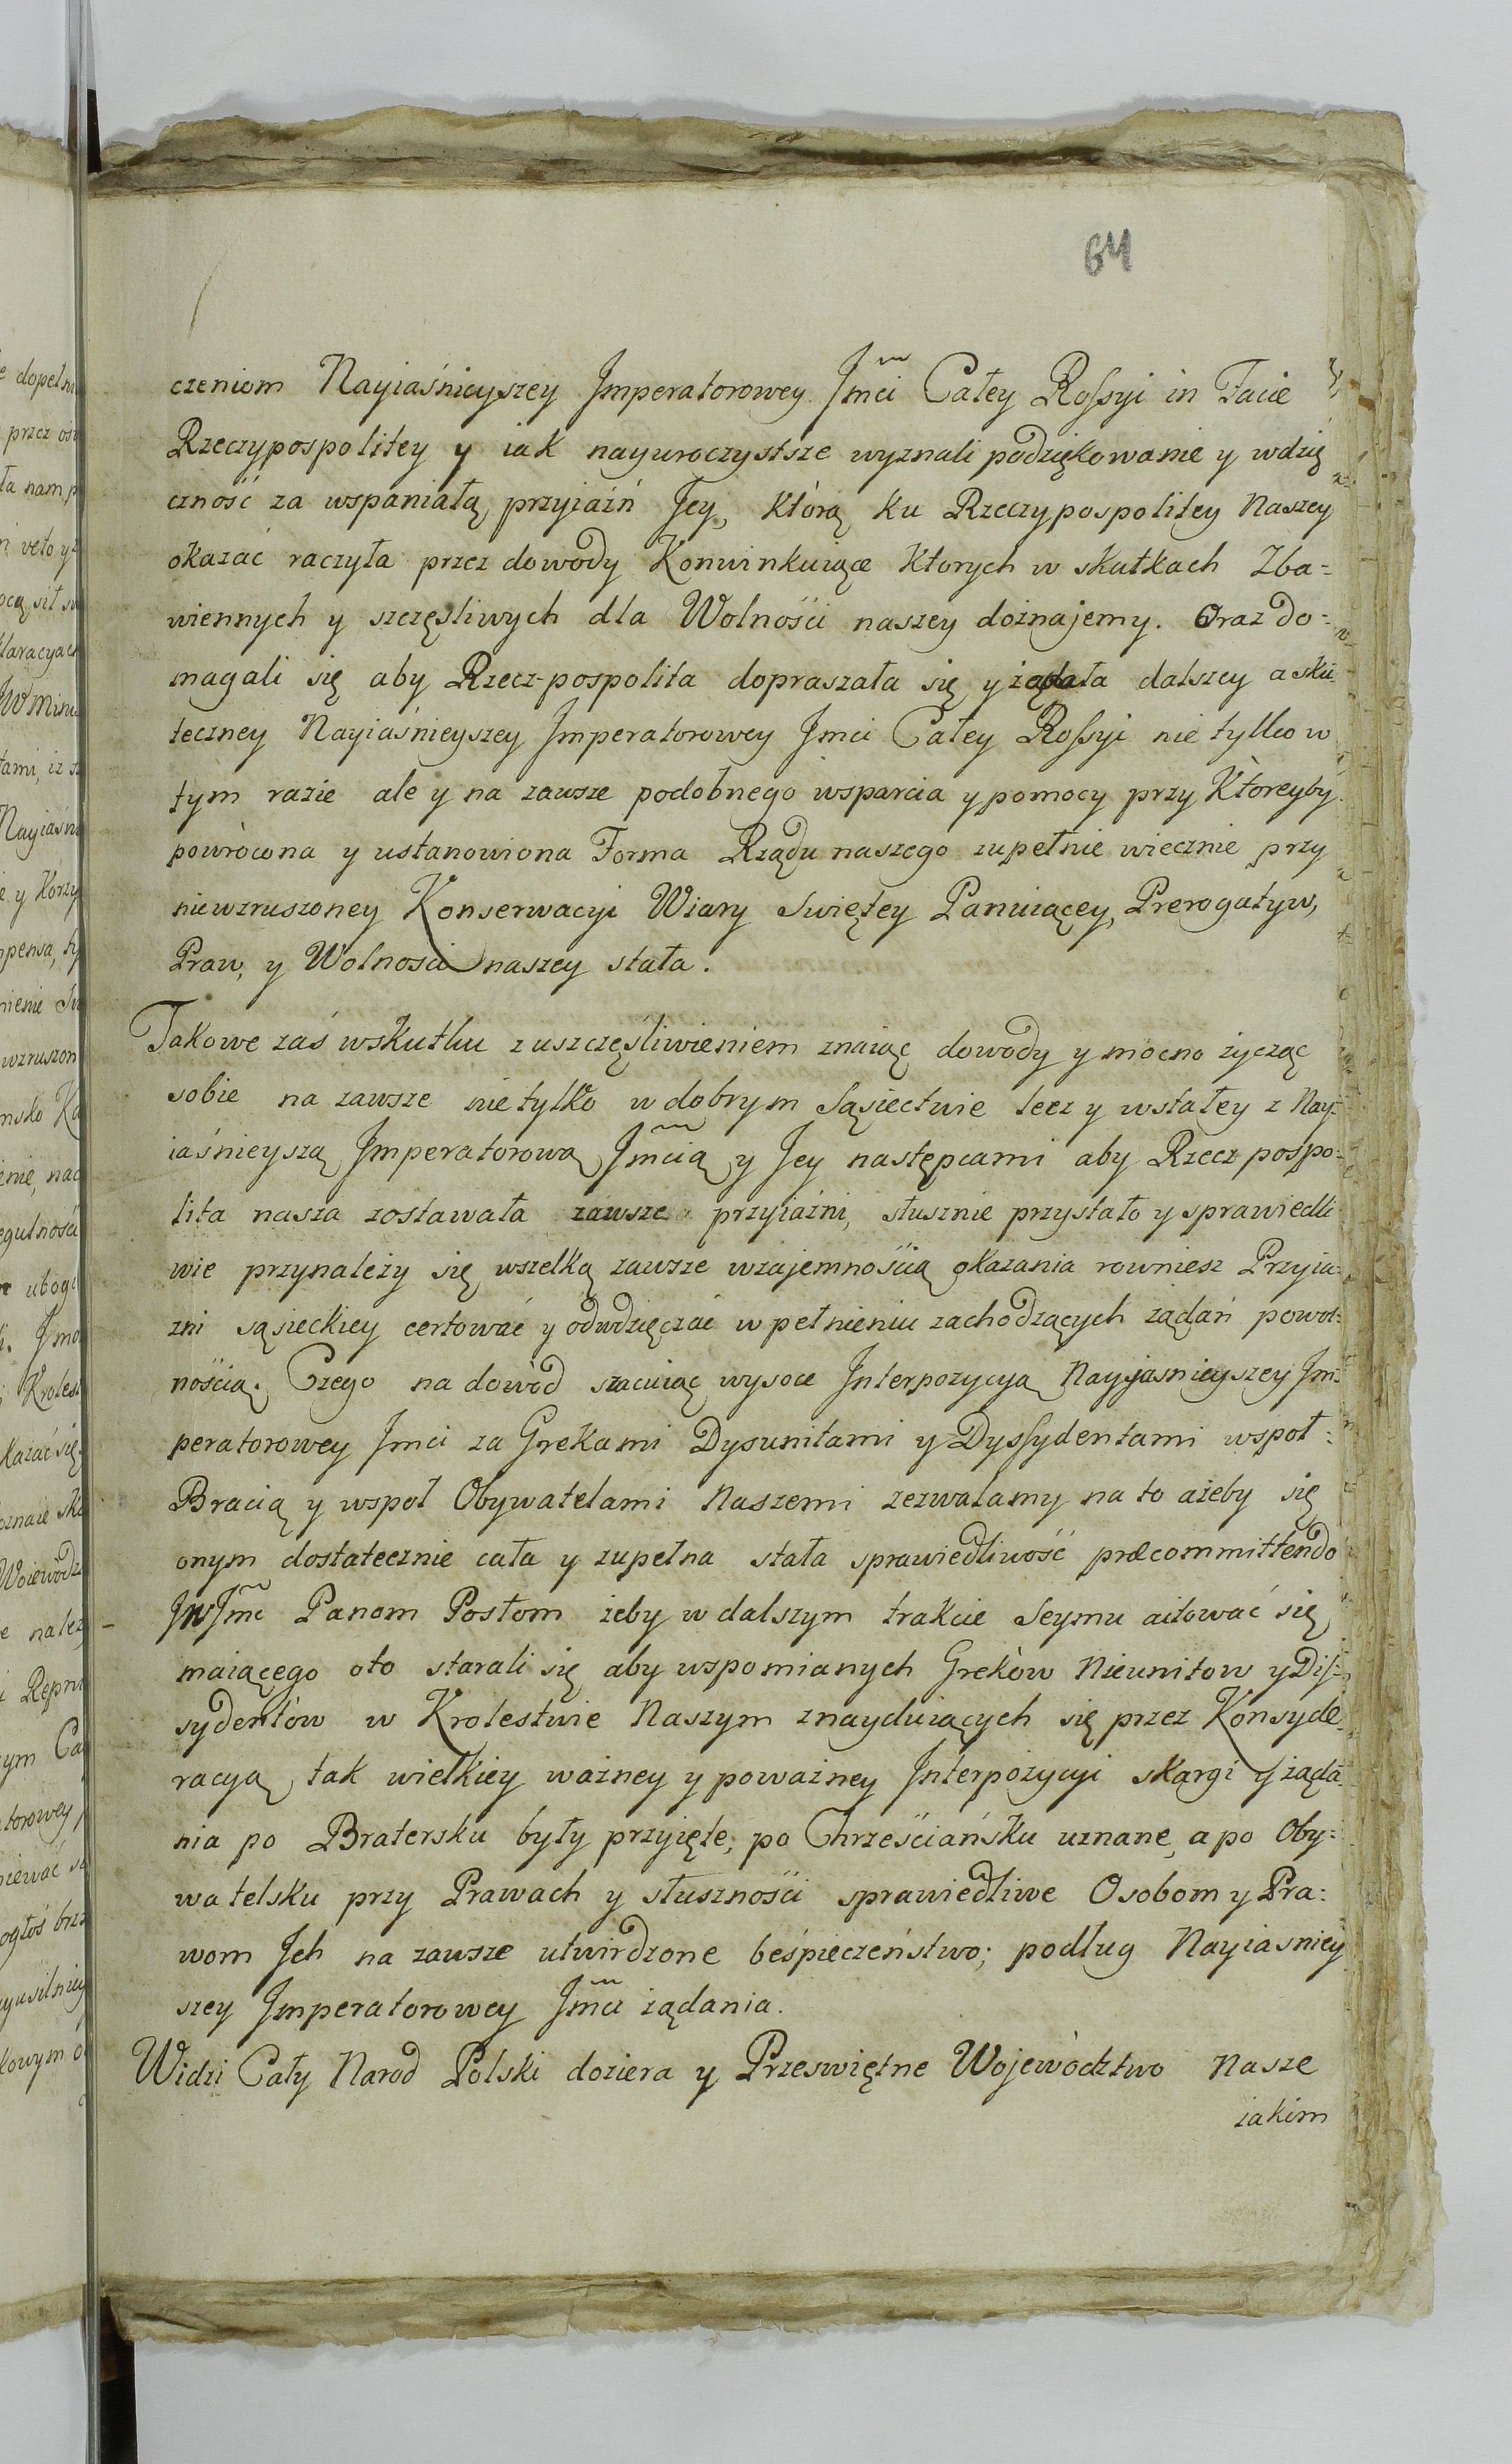 64
czeniom Nayiaśnieyszey Jmperatorowey Jmći Całey Rossyi in Facie
Rzeczypospolitey y iak nayuroczystsze wyznali podziękowanie y wdzię
czność za wspaniałą przyiaźń Jey, którą ku Rzeczypospolitey Naszey
okazać raczyła przez dowody Konwinkuiące Ktorych w skutkach Zba=
wiennych y szczęsliwych dla Wolności naszey doznajemy. Oraz do=
magali się aby Rzecz-pospolita dopraszała się y żądała dalszey a sku=
teczney Nayiaśnieyszey Jmperatorowey Jmci Całey Rossyi nie tylko w
tym razie ale y na zawsze podobnego wsparcia y pomocy przy Ktoreyby
powròcona y ustanowiona Forma Rządu naszego zupełnie wiecznie przy
niewzruszoney Konserwacyi Wiary Swiętey Panuiącey, Prerogatyw,
Praw, y Wolnosci naszey stała.
Takowe zaś wskutku z uszczęśliwieniem znaiąc dowody y mocno życząc
sobie na zawsze nie tylko w dobrym Sąsiectwie lecz y wstałey z Nay=
iaśnieyszą Jmperatorową Jmćią y Jey następcami aby Rzecz pospo=
lita nasza zostawała zawsze przyiaźni, słusznie przystało y sprawiedli
wie przynależy się wszelką zawsze wzajemnością okazania rowniesz Przyia=
zni sąsieckiey certować y odwdzięczać w pełnieniu zachodzących żądań powol=
nością. Czego na dowòd szacuiąc wysoce Jnterpozycyą Nayjasnieyszey Jm=
peratorowey Jmci za Grekami Dysunitami y Dyssydentami wspoł=
Bracią y wspoł Obywatelami Naszemi zezwalamy na to ażeby się
onym dostatecznie cała y zupełna stała sprawiedliwość præcommittendo
JWJmć Panom Posłom żeby w dalszym trakcie Seymu aitować się
maiącego oto starali się aby wspomianych Grekòw Nieunitow y Dis=
sydentòw w Krolestwie Naszym znayduiących się przez Konsyde
racyą tak wielkiey ważney y poważney Jnterpozycyi skargi y żąda
nia po Bratersku były przyięte, po Chrześciańsku uznane, a po Oby=
watelsku przy Prawach y słuszności sprawiedliwe Osobom y Pra=
wom Jch na zawsze utwirdzone beśpieczeństwo; podług Nayiasniey
szey Jmperatorowey Jmći żądania.
Widzi Cały Narod Polski doziera y Przeswiętne Wojewòdztwo Nasze
iakim